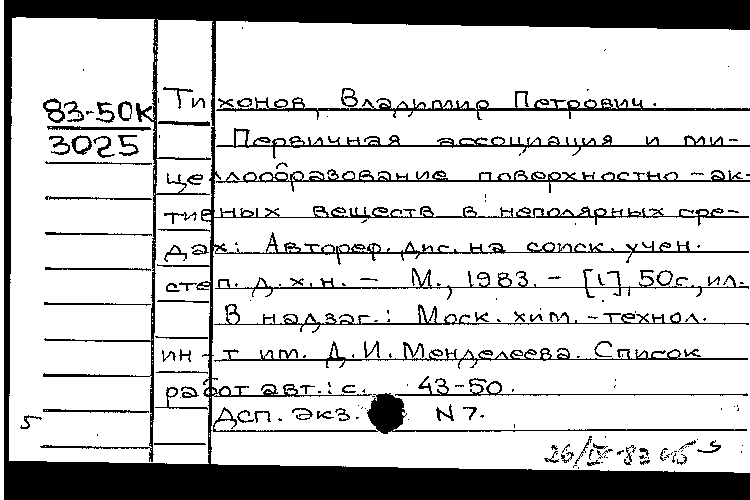 83-50К
3025
Тихонов, Владимир Петрович.
Первичная ассоциация и ми-
целлообразование поверхностно-ак-
тивных веществ в неполярных сре-
дах: Автореф. дис. на соиск. учен.
степ. д.х.н. - М., 1983. - [1], 50с., ил.
В надзаг.: Моск. хим.-технол.
ин-т им. Д.И. Менделеева. Список
работ авт.: с. 43-50.
Дсп. экз. N 7.
5
26/IV-83